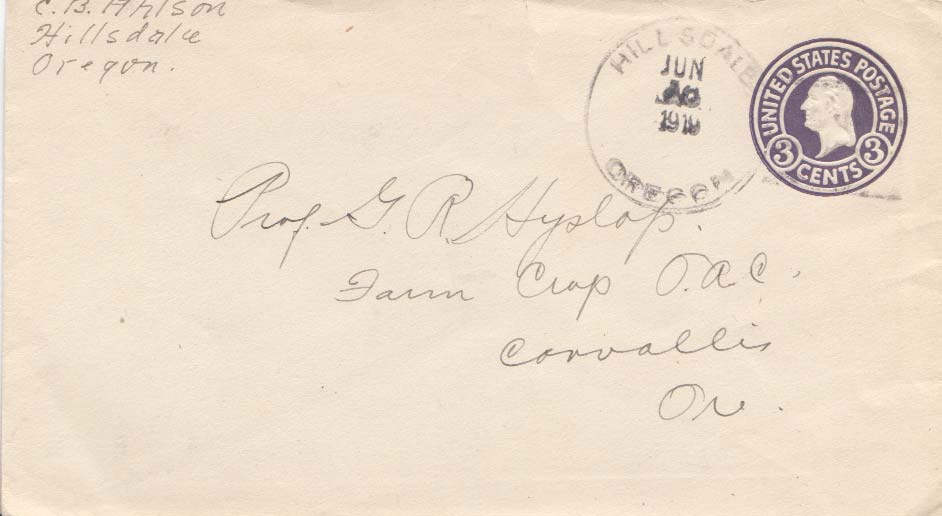 C. B. Ahlson
Hillsdale
Oregon.
HILLSDALE
JUN
1919
OREGON
UNITED STATES POSTAGE
3 CENTS 3
Prof. G. R. Hyslop.
Farm Crop O.A.C.
Corvallis
Ore.